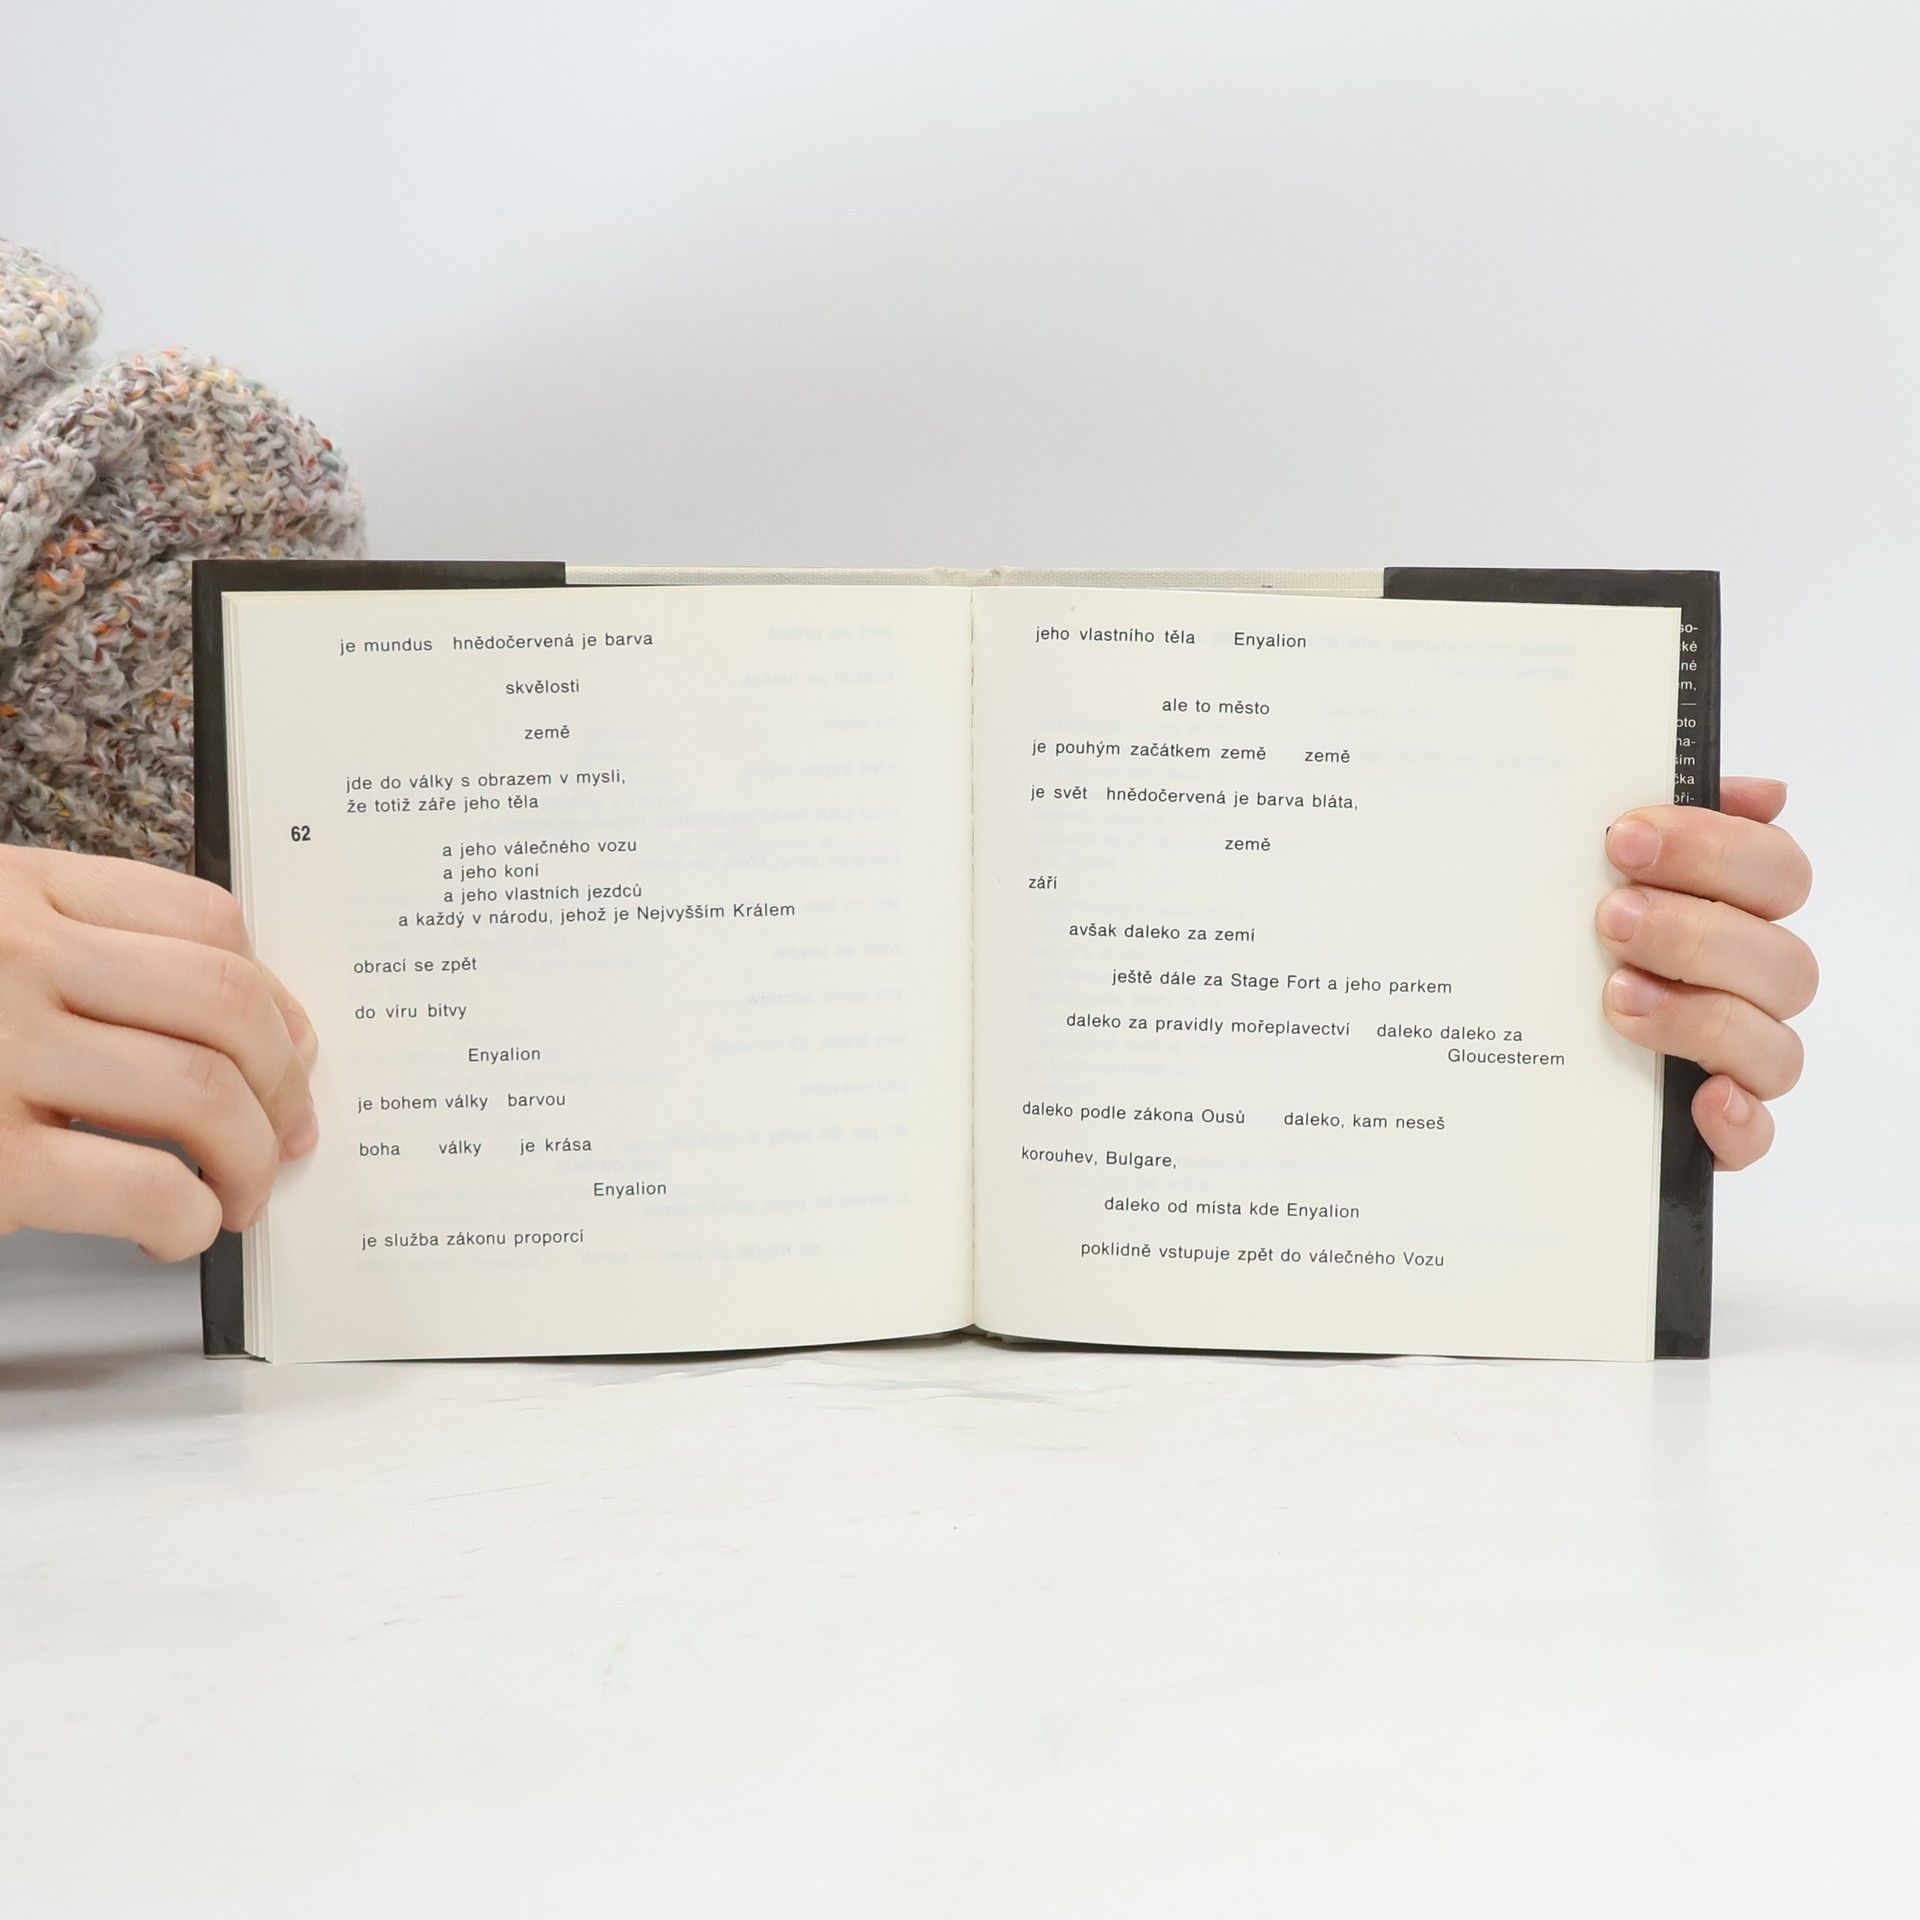 je mundus hnědočervená je barva
skvělosti
země
jde do války s obrazem v mysli,
že totiž záře jeho těla
62
a jeho válečného vozu
a jeho koní
a jeho vlastních jezdců
a každý v národu, jehož je Nejvyšším Králem
obrací se zpět
do víru bitvy
Enyalion
je bohem války barvou
boha války je krása
Enyalion
je služba zákonu proporcí
jeho vlastního těla Enyalion
ale to město
je pouhým začátkem země země
je svět hnědočervená je barva bláta,
země
září
avšak daleko za zemí
ještě dále za Stage Fort a jeho parkem
daleko za pravidly mořeplavectví daleko daleko za
Gloucesterem
daleko podle zákona Ousů daleko, kam neseš
korouhev, Bulgare,
daleko od místa kde Enyalion
poklidně vstupuje zpět do válečného Vozu